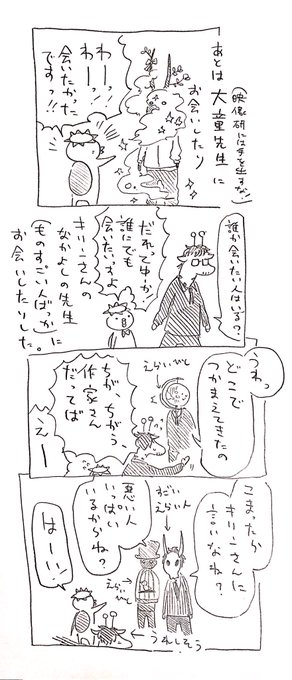 あとは大童先生に
(映像研には手を出すな!)
お会いしたり
わーっ!
わーっ!
会いたかった
ですっ!!
誰か会いたい人はいる?
だれでゆか!
誰にでも
会いたいっすよ
キリンさんの
なかよしの先生
(ものすごい人ばっか)に
お会いしたりした。
うわっ
どこで
つかまえてきたの
えらいひと
ちが、ちがう、
作家さん
だってば
えー
こまったら
キリンさんに
言いなね?
すごい
えらい人
悪い人
いっぱい
いるからね?
えらいひと
はーい!
うれしそう